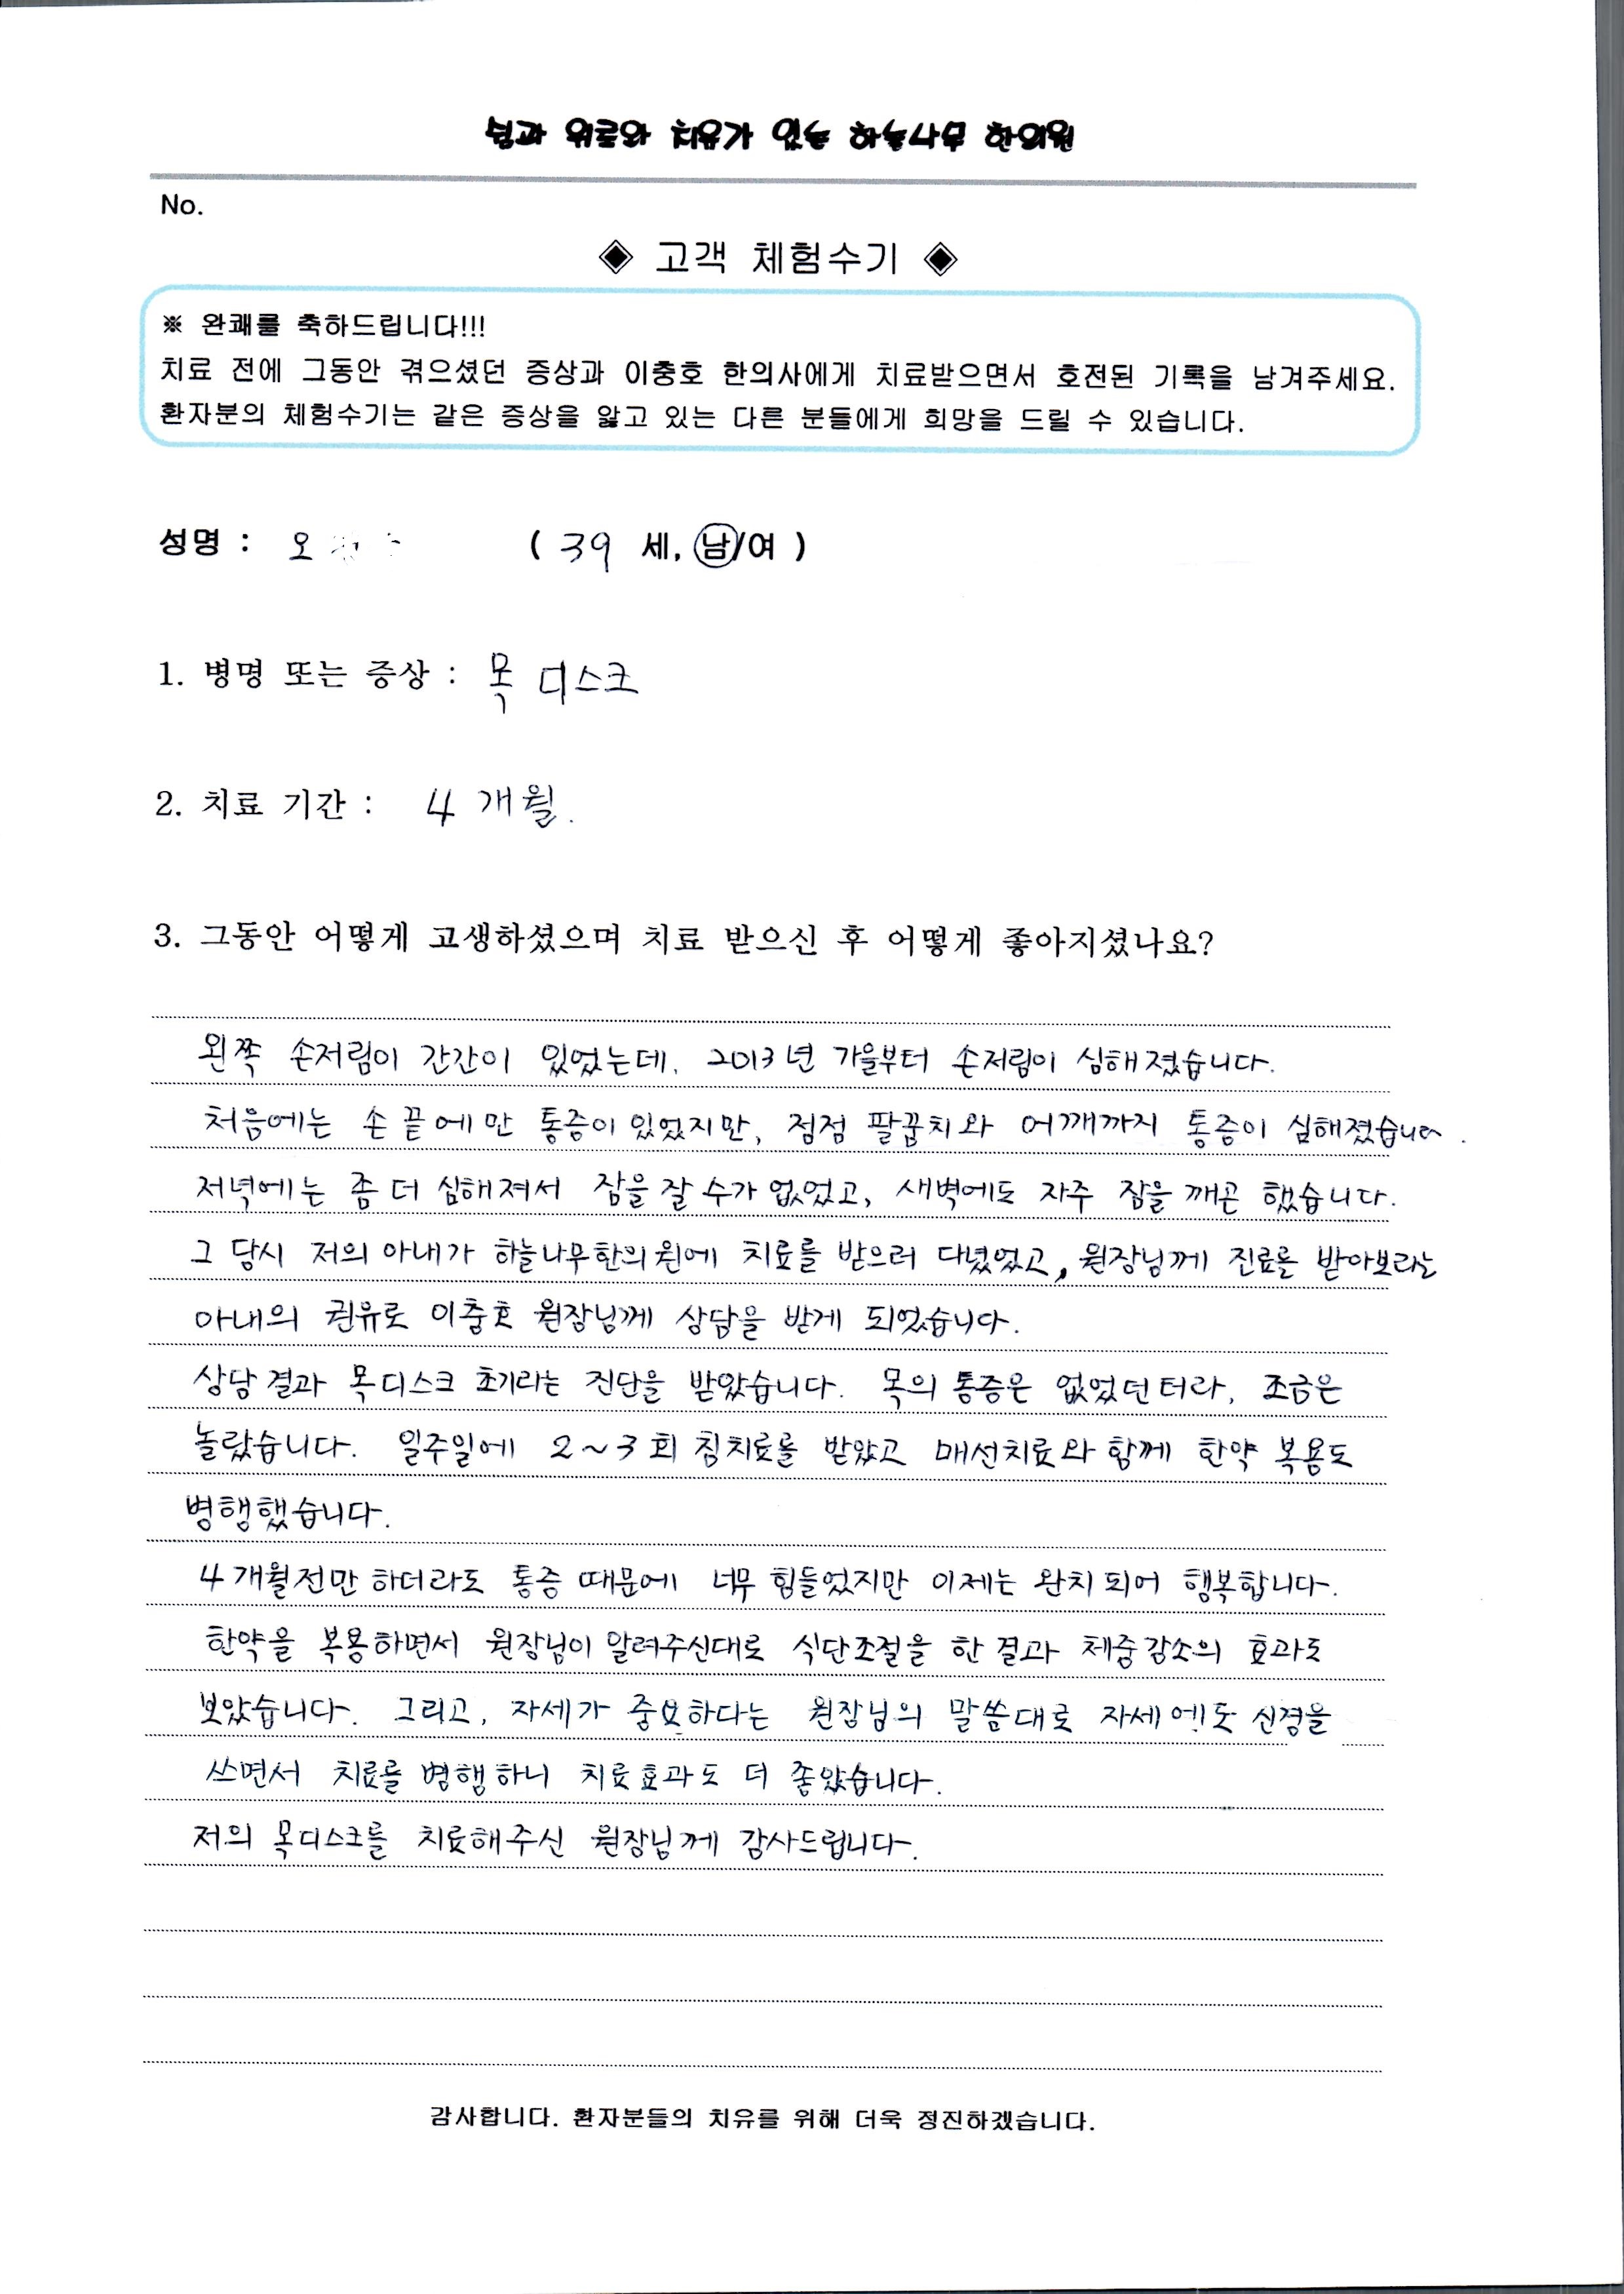 쉼과 위로와 치유가 있는 하늘나무 한의원
No.
◈ 고객 체험수기 ◈
※ 완쾌를 축하드립니다!!!
치료 전에 그동안 겪으셨던 증상과 이충호 한의사에게 치료받으면서 호전된 기록을 남겨주세요.
환자분의 체험수기는 같은 증상을 앓고 있는 다른 분들에게 희망을 드릴 수 있습니다.
성명 : 오 ( 39 세, 남/여 )
1. 병명 또는 증상 : 목 디스크
2. 치료 기간 : 4 개월.
3. 그동안 어떻게 고생하셨으며 치료 받으신 후 어떻게 좋아지셨나요?
왼쪽 손저림이 간간이 있었는데, 2013년 가을부터 손저림이 심해졌습니다.
처음에는 손 끝에만 통증이 있었지만, 점점 팔꿈치와 어깨까지 통증이 심해졌습니다.
저녁에는 좀 더 심해져서 잠을 잘 수가 없었고, 새벽에도 자주 잠을 깨곤 했습니다.
그 당시 저의 아내가 하늘나무한의원에 치료를 받으러 다녔었고, 원장님께 진료를 받아보라는
아내의 권유로 이충호 원장님께 상담을 받게 되었습니다.
상담 결과 목디스크 초기라는 진단을 받았습니다. 목의 통증은 없었던터라, 조금은
놀랐습니다. 일주일에 2~3회 침치료를 받았고 매선치료와 함께 한약 복용도
병행했습니다.
4개월전만 하더라도 통증 때문에 너무 힘들었지만 이제는 완치되어 행복합니다.
한약을 복용하면서 원장님이 알려주신대로 식단조절을 한 결과 체중감소의 효과도
보았습니다. 그리고, 자세가 중요하다는 원장님의 말씀대로 자세에도 신경을
쓰면서 치료를 병행하니 치료효과도 더 좋았습니다.
저의 목디스크를 치료해주신 원장님께 감사드립니다.
감사합니다. 환자분들의 치유를 위해 더욱 정진하겠습니다.